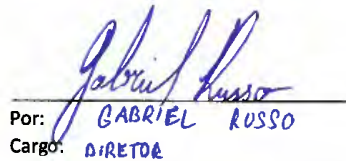 Gabriel Russo
Por: GABRIEL RUSSO
Cargo: DIRETOR